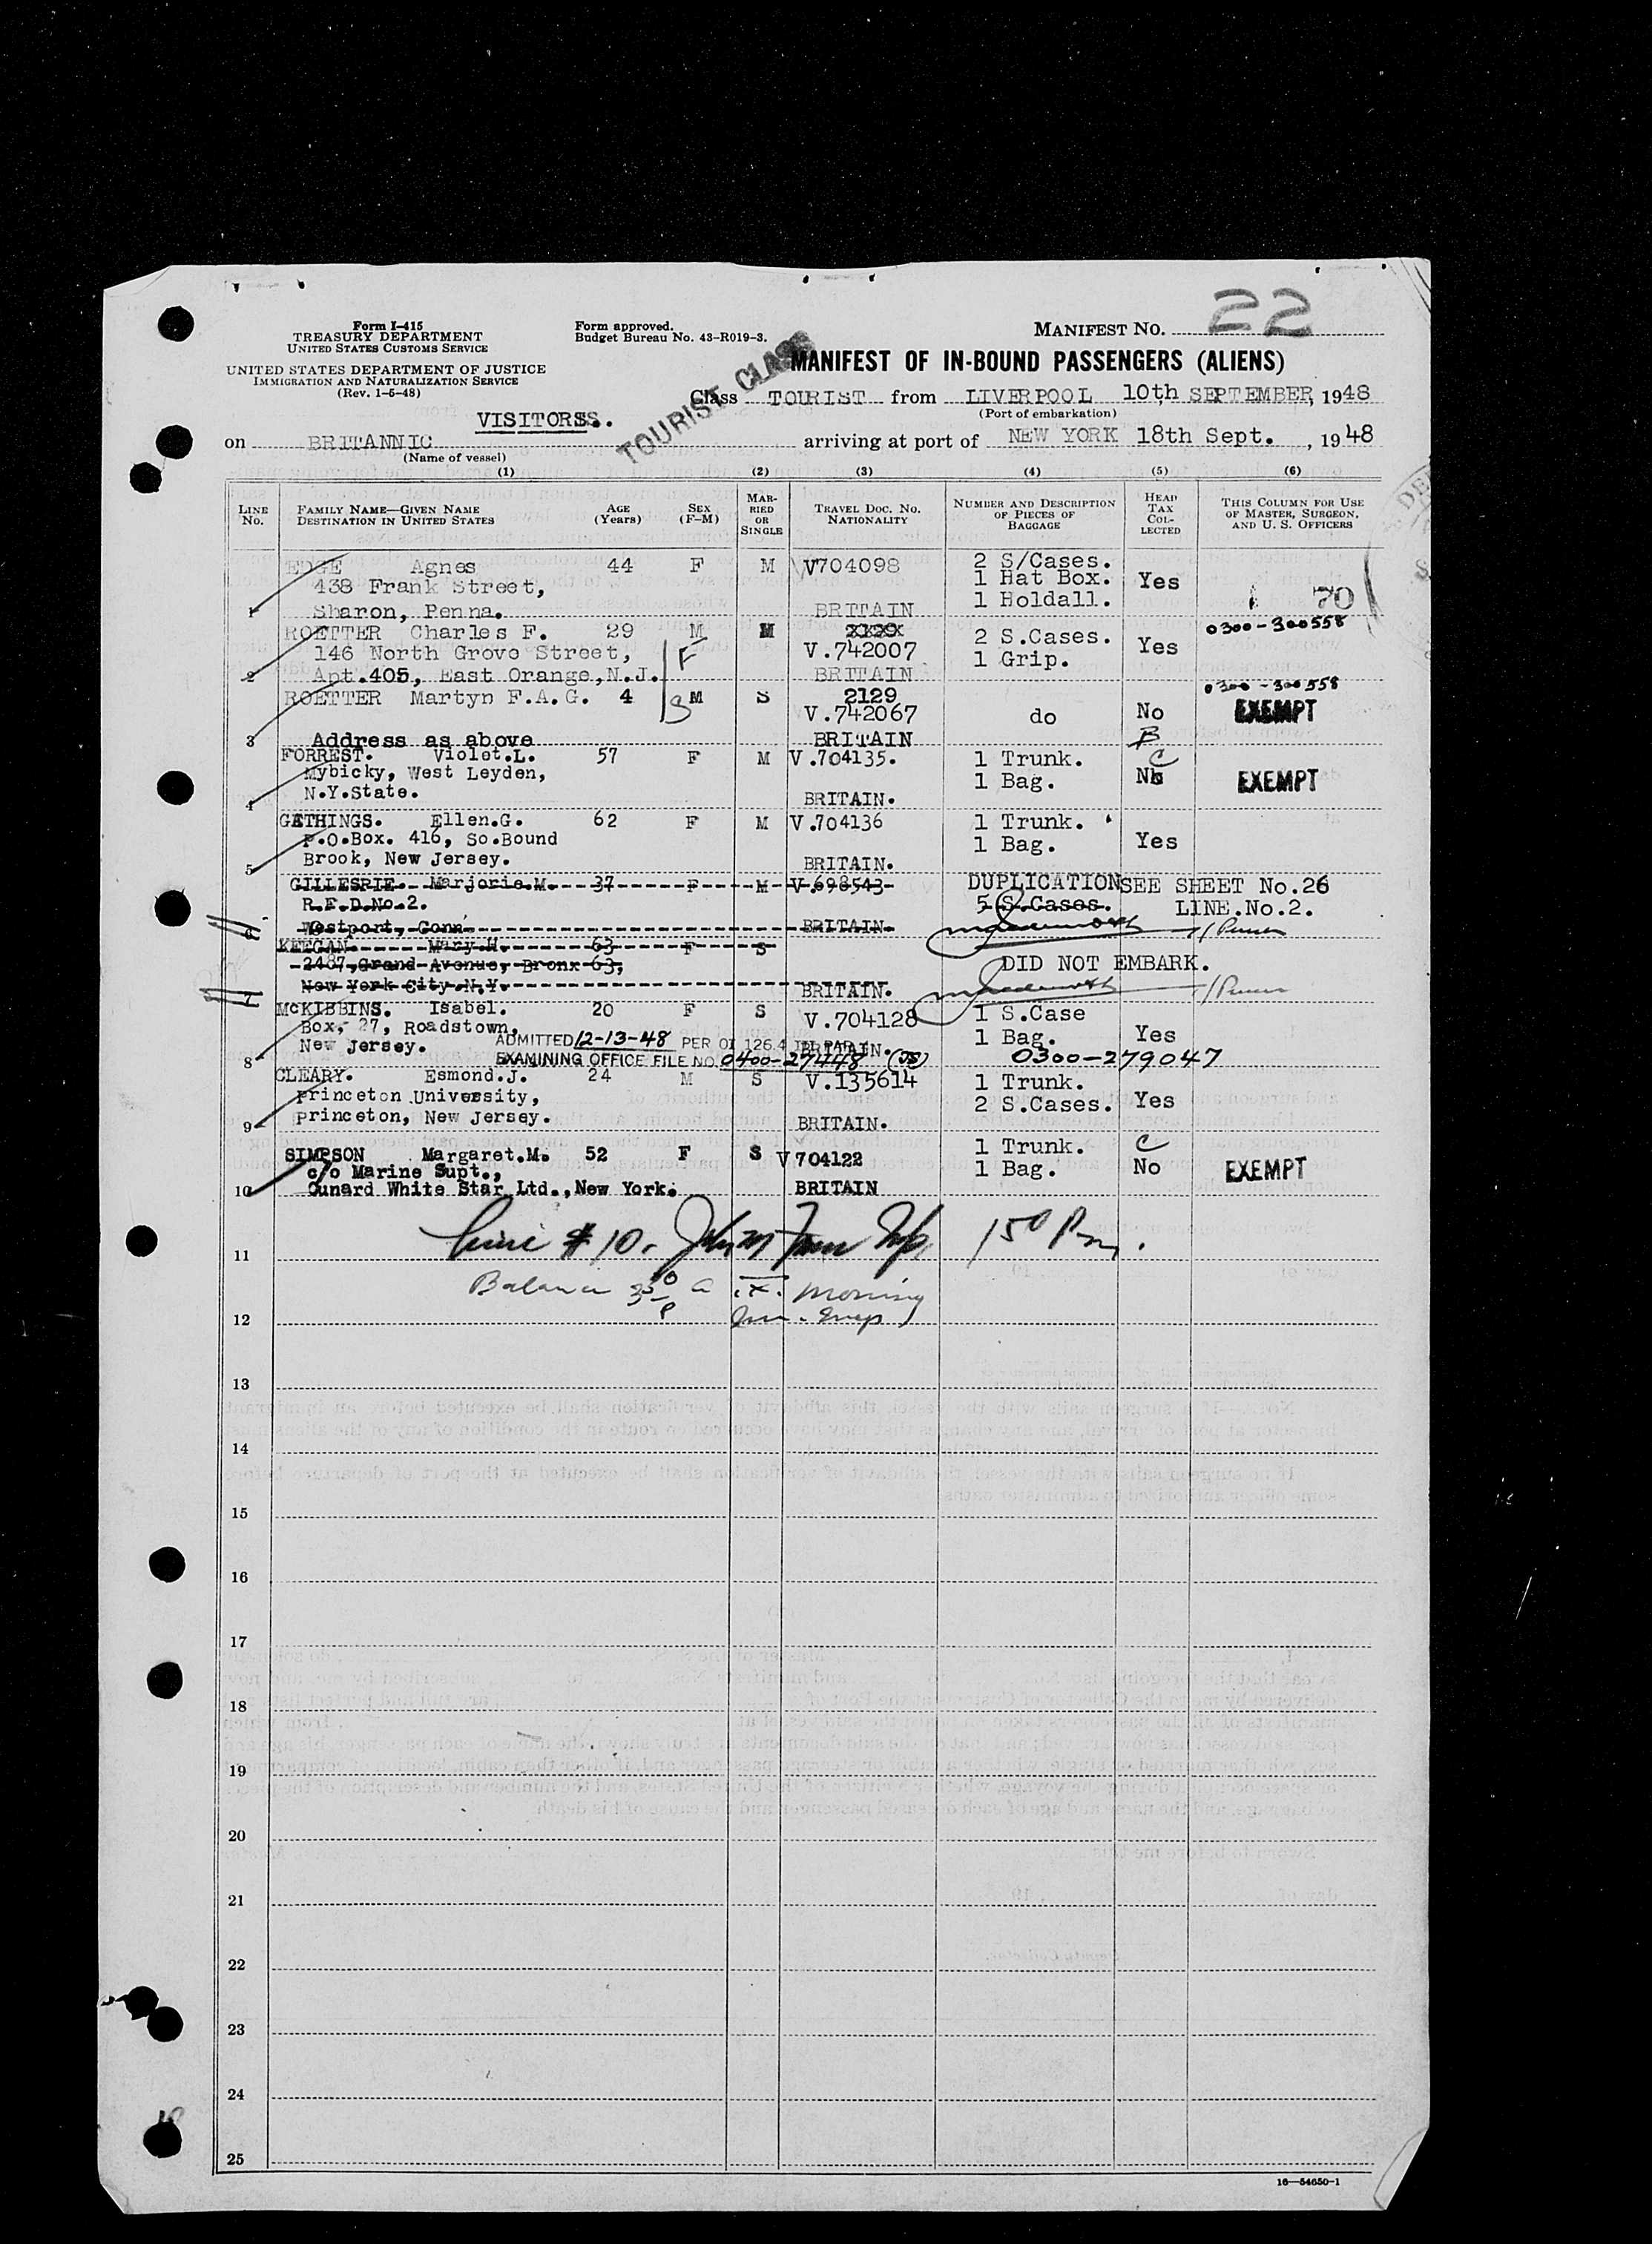 22
Form I-415
TREASURY DEPARTMENT
UNITED STATES CUSTOMS SERVICE
UNITED STATES DEPARTMENT OF JUSTICE
IMMIGRATION AND NATURALIZATION SERVICE
(Rev. 1-5-48)
Form approved.
Budget Bureau No. 43-R019-3.
MANIFEST NO.
MANIFEST OF IN-BOUND PASSENGERS (ALIENS)
TOURIST CLASS
Class TOURIST from LIVERPOOL 10th SEPTEMBER, 1948
(Port of embarkation)
VISITORS.
on BRITANNIC arriving at port of NEW YORK 18th Sept., 1948
(Name of vessel)
(1) (2) (3) (4) (5) (6)
LINE No. FAMILY NAME—GIVEN NAME DESTINATION IN UNITED STATES AGE (Years) SEX (F-M) MARRIED OR SINGLE TRAVEL DOC. NO. NATIONALITY NUMBER AND DESCRIPTION OF PIECES OF BAGGAGE HEAD TAX COLLECTED THIS COLUMN FOR USE OF MASTER, SURGEON, AND U. S. OFFICERS
EDGE Agnes 44 F M V704098 2 S/Cases.
438 Frank Street, 1 Hat Box. Yes
1 Sharon, Penna. BRITAIN 1 Holdall. 70
ROETTER Charles F. 29 M M 2129 0300-300558
146 North Grove Street, F V.742007 2 S.Cases. Yes
2 Apt.405, East Orange,N.J. BRITAIN 1 Grip.
ROETTER Martyn F.A.G. 4 S M S 2129 0300-300558
V.742067 do No EXEMPT
3 Address as above BRITAIN B
FORREST. Violet.L. 57 F M V.704135. 1 Trunk. C
Mybicky, West Leyden, 1 Bag. No EXEMPT
4 N.Y.State. BRITAIN.
GETHINGS. Ellen.G. 62 F M V.704136 1 Trunk.
P.O.Box. 416, So.Bound 1 Bag. Yes
5 Brook, New Jersey. BRITAIN.
GILLESPIE. Marjorie.M. 37 F M V.698543 DUPLICATION SEE SHEET No.26
R.F.D.No.2. 5 S.Cases. LINE.No.2.
6 Westport, Conn. BRITAIN.
KEEGAN. Mary.H. 63 F S
2487,Grand Avenue, Bronx 63, DID NOT EMBARK.
7 New York City.N.Y. BRITAIN.
McKIBBINS. Isabel. 20 F S V.704128 1 S.Case
Box, 27, Roadstown, 1 Bag. Yes
New Jersey. ADMITTED 12-13-48 PER OI 126.4 BRITAIN.
8 EXAMINING OFFICE FILE NO. 0400-27448 (JS) 0300-279047
CLEARY. Esmond.J. 24 M S V.135614 1 Trunk.
Princeton University, 2 S.Cases. Yes
9 Princeton, New Jersey. BRITAIN.
SIMPSON Margaret.M. 52 F S V704122 1 Trunk. C
c/o Marine Supt., 1 Bag. No EXEMPT
10 Cunard White Star Ltd.,New York. BRITAIN
Line #10. 150 Pm.
11
Balance
morning
12
13
14
15
16
17
18
19
20
21
22
23
24
25
16—54650-1